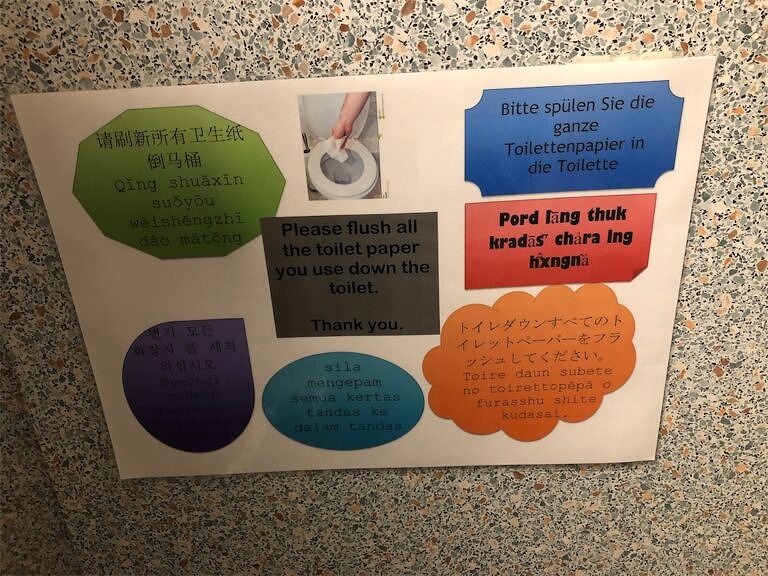 请刷新所有卫生纸
倒马桶
Qǐng shuāxīn
suǒyǒu
wèishēngzhǐ
dào mǎtǒng
Please flush all
the toilet paper
you use down the
toilet.
Thank you.
Bitte spülen Sie die
ganze
Toilettenpapier in
die Toilette
Pord lāng thuk
kradās̄ʹ chảra lng
h̄̂xngn̂ả
변기 모든
화장지 를 세척
하십시오
byeongi
modeun
sila
mengepam
semua kertas
tandas ke
dalam tandas
トイレダウンすべてのト
イレットペーパーをフラ
ッシュしてください。
Toire daun subete
no toirettopēpā o
furasshu shite
kudasai.